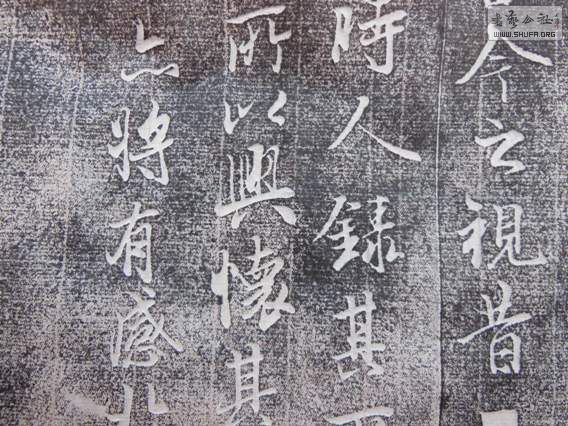 今之視昔
時人錄其
所以興懷其
亦將有感於
書藝公社
WWW.SHUFA.ORG